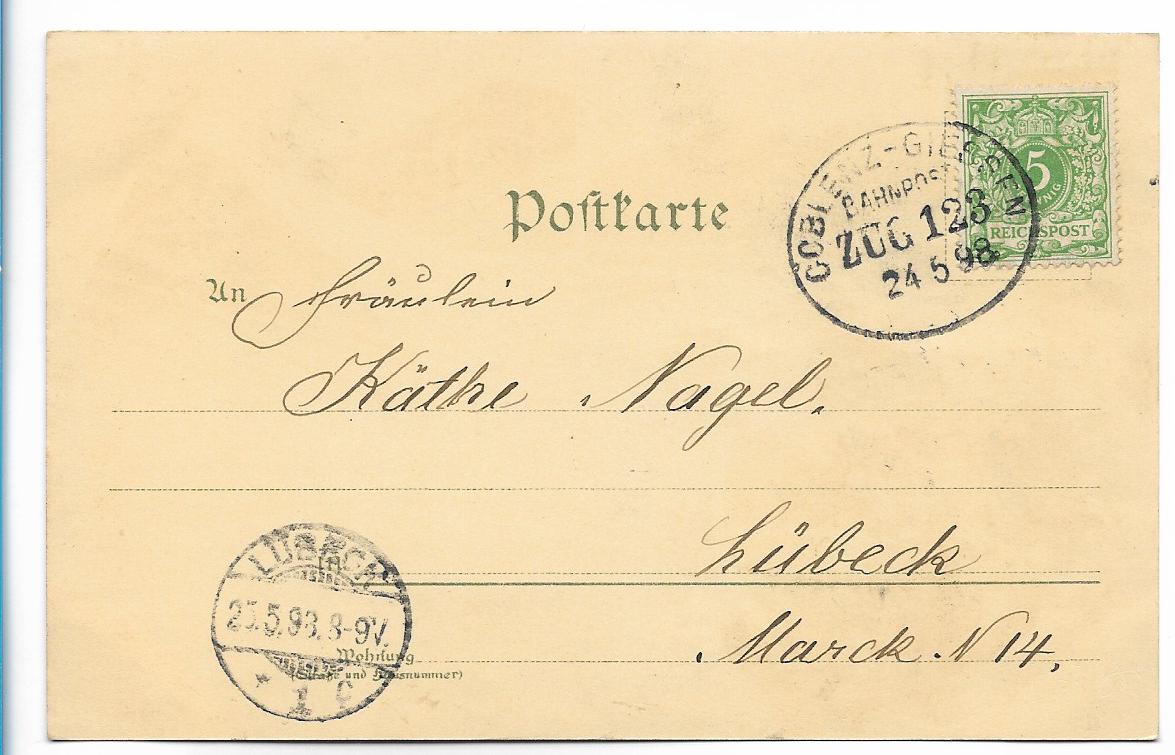 Postkarte
5
PFENNIG
REICHSPOST
COBLENZ-GIESSEN
BAHNPOST
ZUG 123
24 5 98
An Fräulein
Käthe Nagel.
Lübeck
Marck. N 14,
LÜBECK
25.5.98.8-9V.
1
Wohnung
(Straße und Hausnummer)